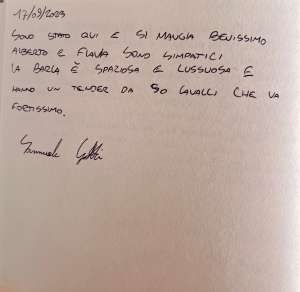 17/09/2023
SONO STATO QUI E SI MANGIA BENISSIMO
ALBERTO E FLAVIA SONO SIMPATICI
LA BARCA È SPAZIOSA E LUSSUOSA E
HANNO UN TENDER DA 50 CAVALLI CHE VA
FORTISSIMO.